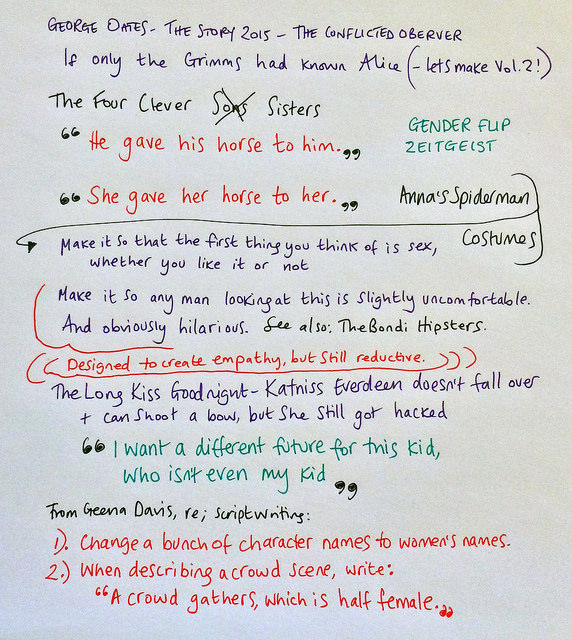 GEORGE OATES - THE STORY 2015 - THE CONFLICTED OBERVER
If only the Grimms had known Alice (- lets make Vol. 2!)
The Four Clever Sons Sisters
"He gave his horse to him."
GENDER FLIP
ZEITGEIST
"She gave her horse to her."
Anna's Spiderman
Costumes
Make it so that the first thing you think of is sex,
whether you like it or not
Make it so any man looking at this is slightly uncomfortable.
And obviously hilarious. See also: The Bondi Hipsters.
((Designed to create empathy, but still reductive.)))
The Long Kiss Goodnight - Katniss Everdeen doesn't fall over
+ can shoot a bow, but she still got hacked
"I want a different future for this kid,
who isn't even my kid"
From Geena Davis, re; scriptwriting:
1). Change a bunch of character names to women's names.
2.) When describing a crowd scene, write:
"A crowd gathers, which is half female."